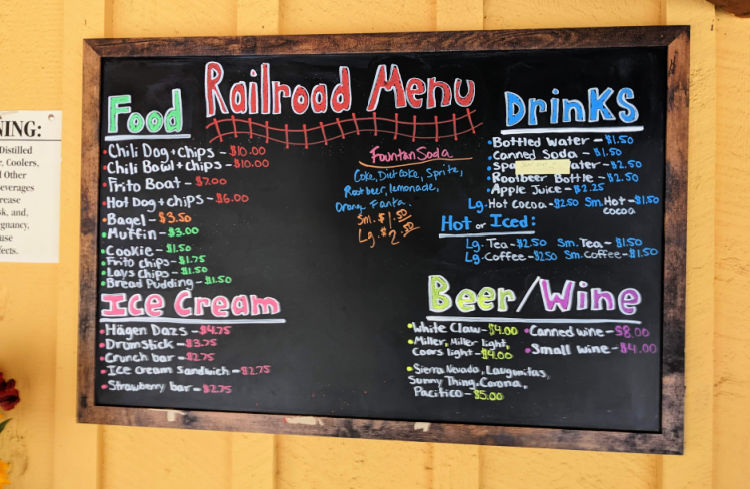 NING:
Distilled
r, Coolers,
d Other
everages
crease
sk, and,
gnancy,
use
fects.
Railroad Menu
Food
Chili Dog + chips - $10.00
Chili Bowl + chips - $10.00
Frito Boat - $7.00
Hot Dog + chips - $6.00
Bagel - $3.50
Muffin - $3.00
Cookie - $1.50
Frito chips - $1.75
Lays chips - $1.50
Bread Pudding - $1.50
Ice Cream
Hägen Dazs - $4.75
Drumstick - $3.75
Crunch bar - $2.75
Ice cream sandwich - $2.75
Strawberry bar - $2.75
Fountan Soda
Coke, Diet coke, Sprite,
Root beer, lemonade,
Orang Fanta.
Sm. $1.50
Lg. $2.50
Drinks
Bottled water - $1.50
Canned Soda - $1.50
Spa ater - $2.50
Rootbeer Bottle - $2.50
Apple Juice - $2.25
Lg. Hot Cocoa - $2.50 Sm. Hot cocoa - $1.50
Hot or Iced:
Lg. Tea - $2.50 Sm. Tea - $1.50
Lg. Coffee - $2.50 Sm. Coffee - $1.50
Beer/Wine
White Claw - $4.00
Miller, Miller light,
Coors light - $4.00
Sierra Nevada, Laugonitas,
Sunny Thing, Corona,
Pacifico - $5.00
Canned wine - $8.00
Small wine - $4.00